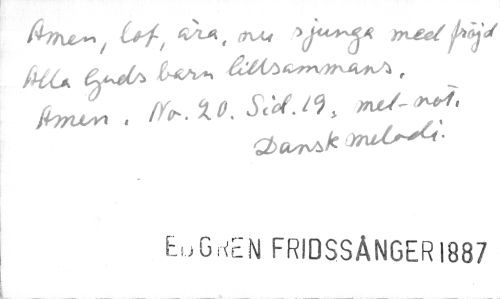 Amen, lof, ära, nu sjunga med fröjd
Alla Guds barn tillsammans.
Amen. No. 20. Sid. 19, mel-not.
Dansk melodi.
EDGREN FRIDSSÅNGER 1887